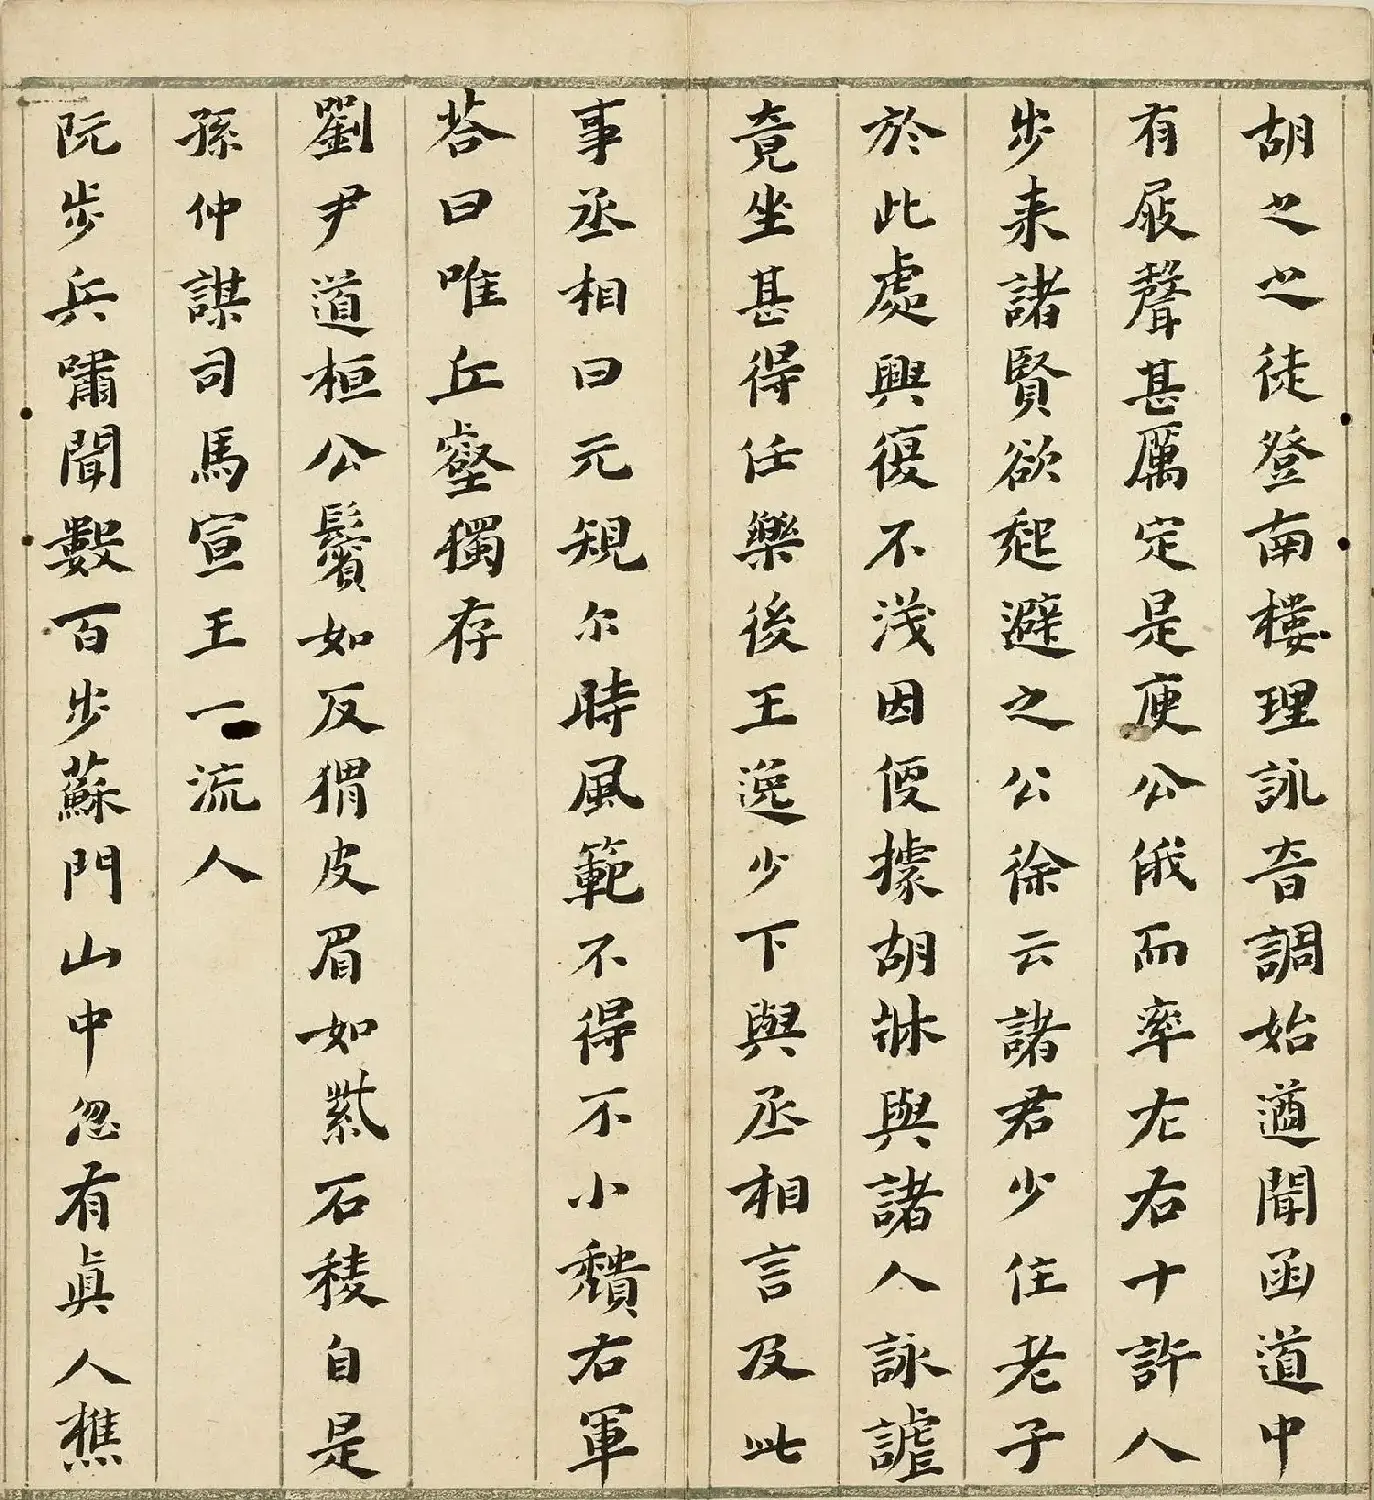 胡之之徒登南樓理詠音調始遒聞函道中
有屐聲甚厲定是庾公俄而率左右十許人
步来諸賢欲起避之公徐云諸君少住老子
於此處興復不淺因便據胡牀與諸人詠謔
竟坐甚得任樂後王逸少下與丞相言及此
事丞相曰元規尔時風範不得不小穨右軍
答曰唯丘壑獨存
劉尹道桓公鬢如反猬皮眉如紫石稜自是
孫仲謀司馬宣王一流人
阮步兵嘯聞數百步蘇門山中忽有真人樵